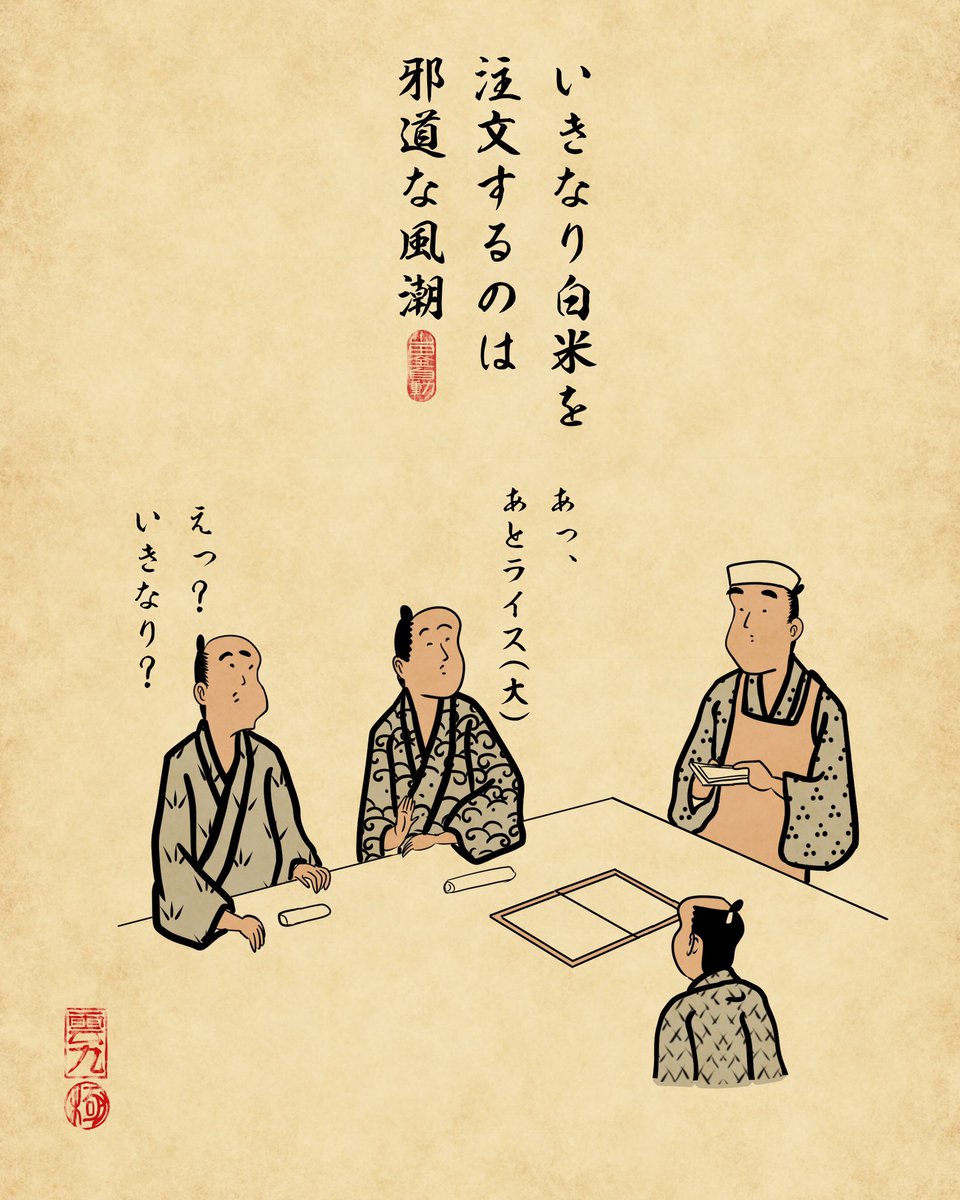 いきなり白米を
注文するのは
邪道な風潮
あっ、
あとライス(大)
えっ?
いきなり?